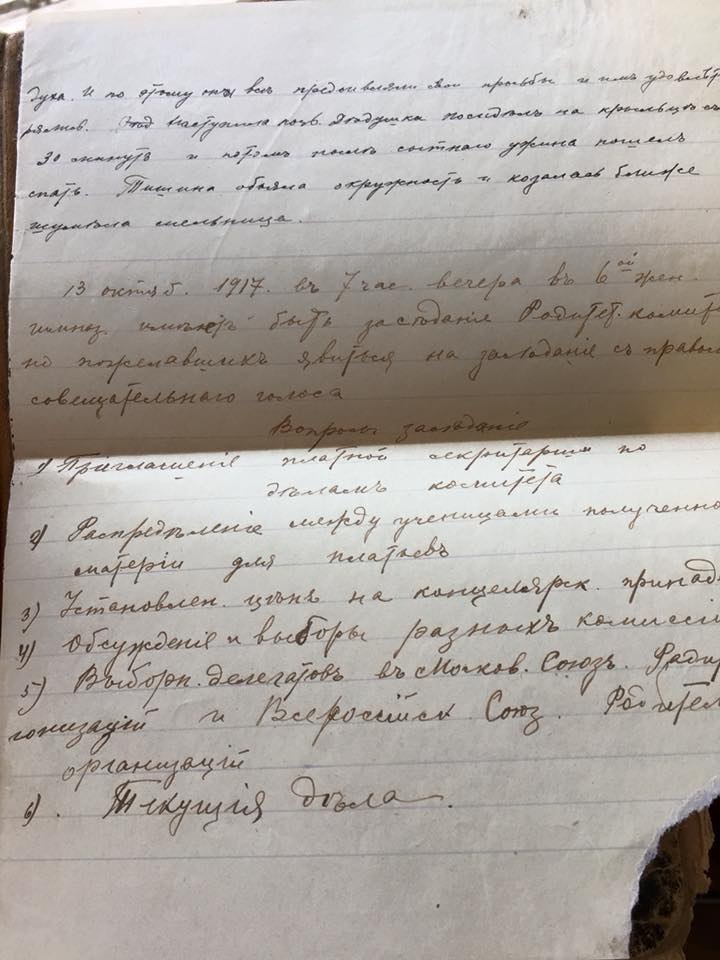 духа. И по этому онъ всѣ предъявляли свои просьбы и имъ удовлѣт
наступила ночь Дѣдушка посидѣлъ на крыльцѣ съ
30 минутъ и потомъ послѣ сытнаго ужина пошелъ
спать. Тишина обьяла окружность и козалась ближе
шумѣла мельница.
13 октяб. 1917. въ 7 час. вечера въ 6ой жен.
гимназ. имѣетъ быть засѣданіе Родител. комит
но пожелавшихъ явиться на засѣданіе съ право
совещательнаго голоса
Вопросы засѣданія
1) Приглашеніе платной секритарши по
дѣламъ комитета
2) Распредѣленіе между ученицами полученно
матеріи для платьевъ
3) Установлен. цѣнъ на концелярск. принад
4) Обсужденіе и выборы разныхъ комиссі
5) Выборн. делегатовъ въ Москов. Союзъ. Роди
гонизацій и Всероссійск Союз. Родител
организацій
6). Текущія дѣла.